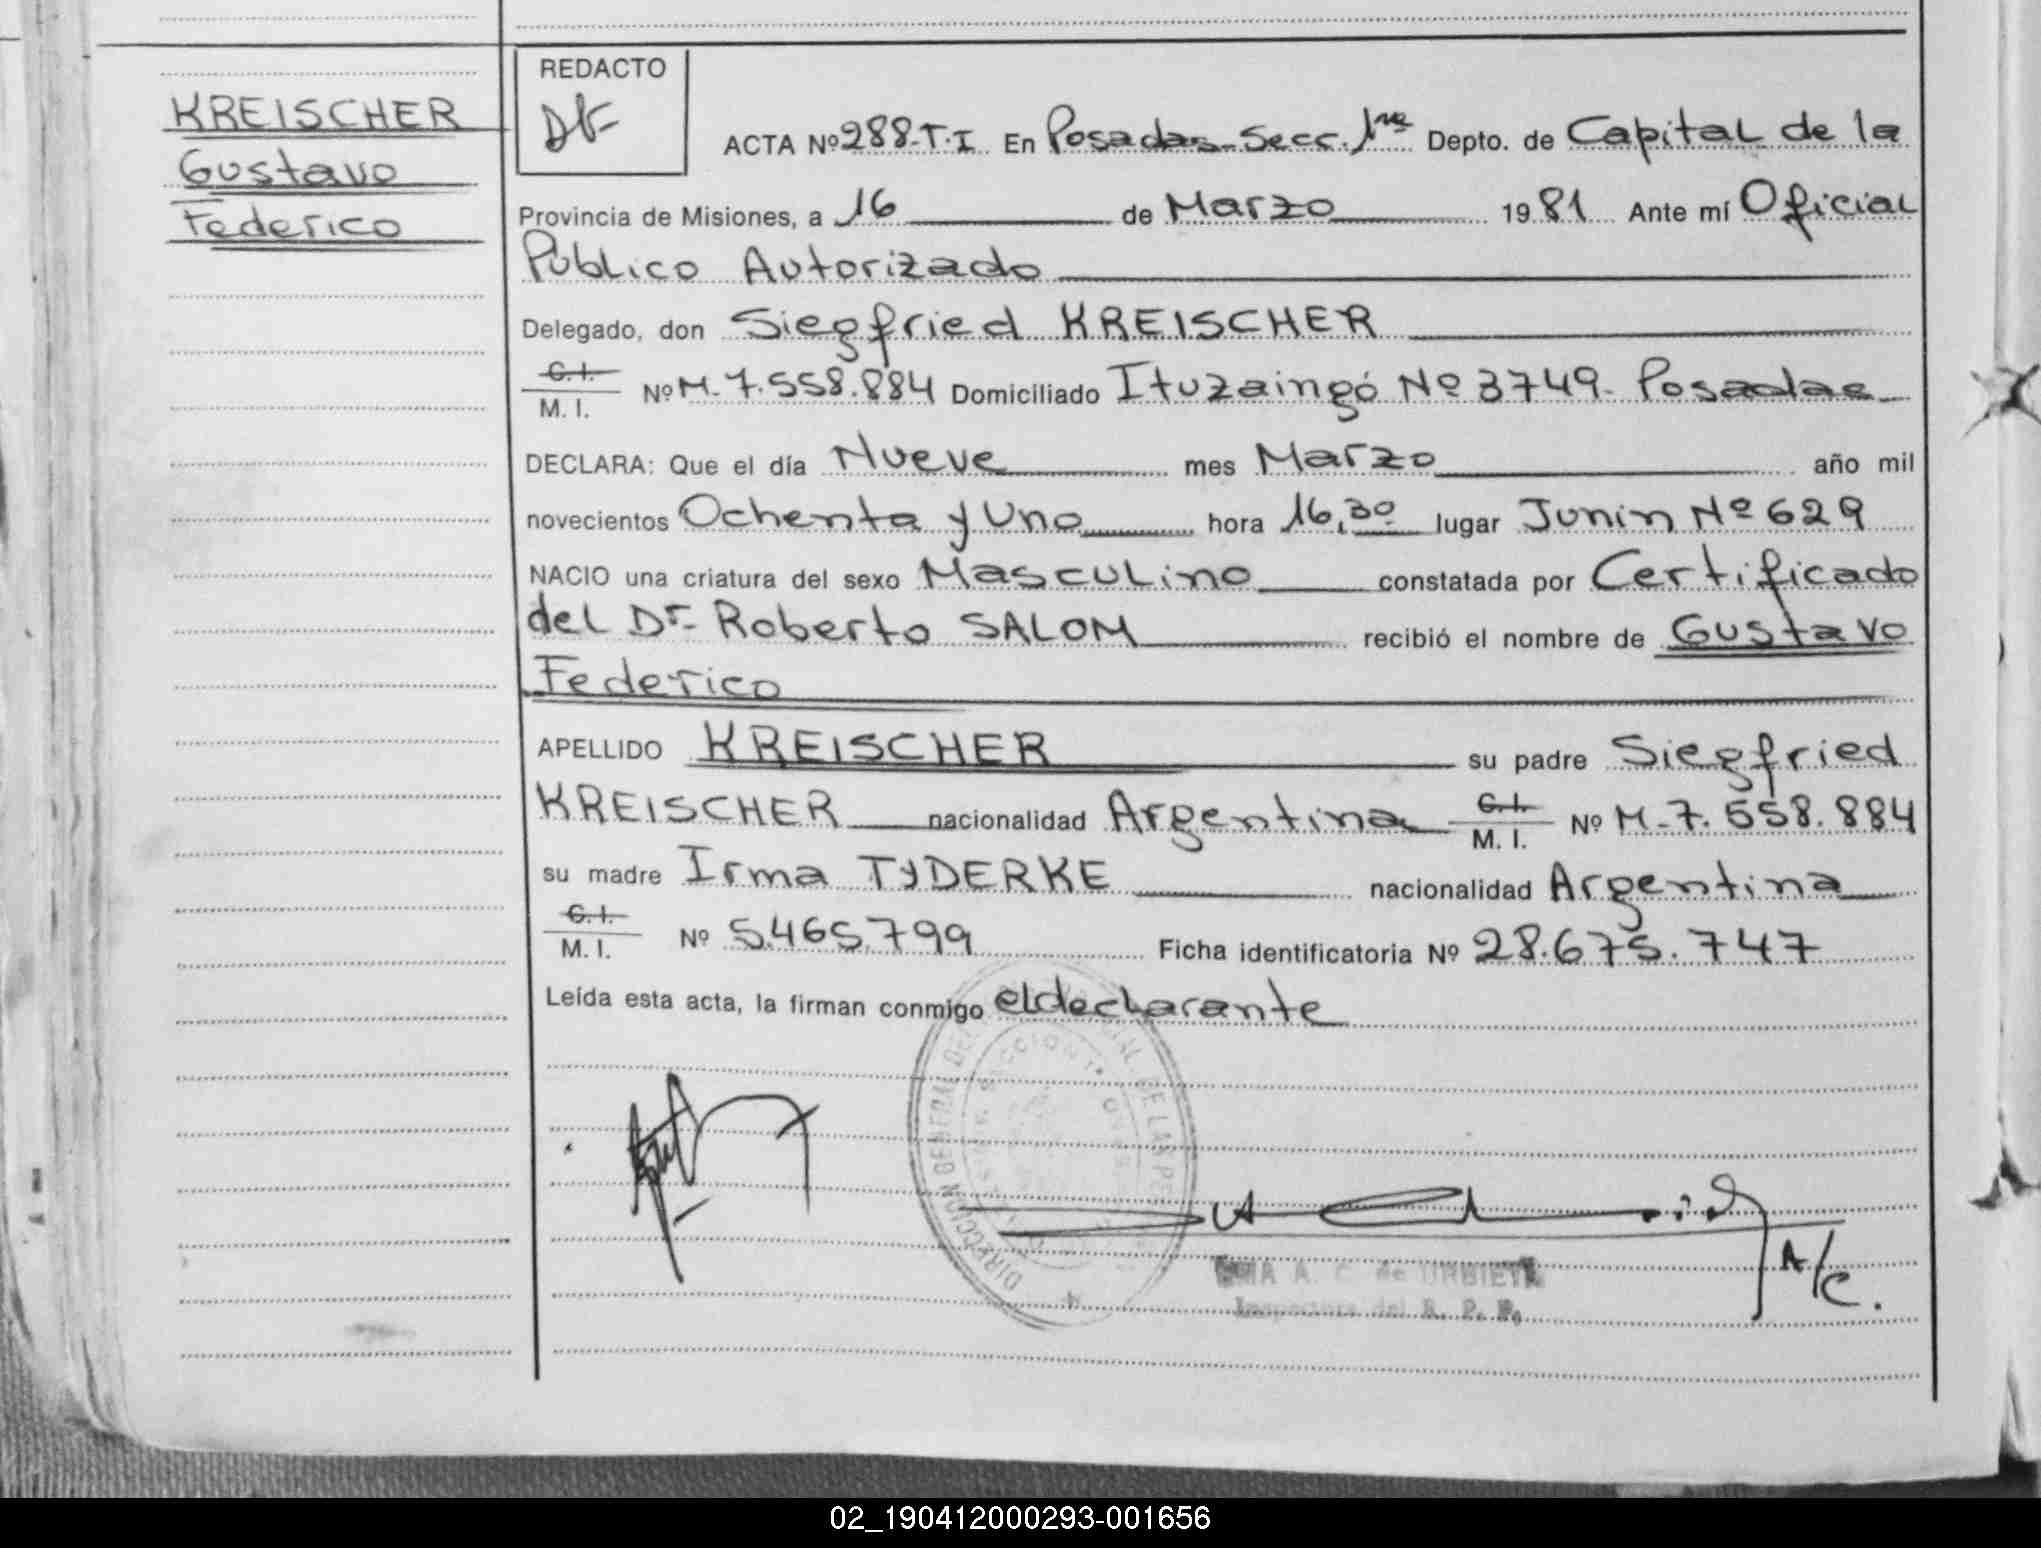 KREISCHER
Gustavo
Federico
REDACTO
ACTA Nº 288-T.I En Posadas-Secc. 1ra Depto. de Capital de la
Provincia de Misiones, a 16 de Marzo 1981 Ante mí Oficial
Público Autorizado
Delegado, don Siegfried KREISCHER
C. I.
M. I. Nº M-7.558.884 Domiciliado Ituzaingó Nº 3749- Posadas
DECLARA: Que el día Nueve mes Marzo año mil
novecientos Ochenta y Uno hora 16,30 lugar Junín Nº 629
NACIO una criatura del sexo Masculino constatada por Certificado
del Dr- Roberto SALOM recibió el nombre de Gustavo
Federico
APELLIDO KREISCHER su padre Siegfried
KREISCHER nacionalidad Argentina C. I. M. I. Nº M-7.558.884
su madre Irma TYDERKE nacionalidad Argentina
C. I.
M. I. Nº 5.465.799 Ficha identificatoria Nº 28.675.747
Leída esta acta, la firman conmigo el declarante
DIRECCION GENERAL DEL DE LAS
SECCION
A/C.
A. C. de URBIETA
Inspectora del R. P. P.
02_190412000293-001656